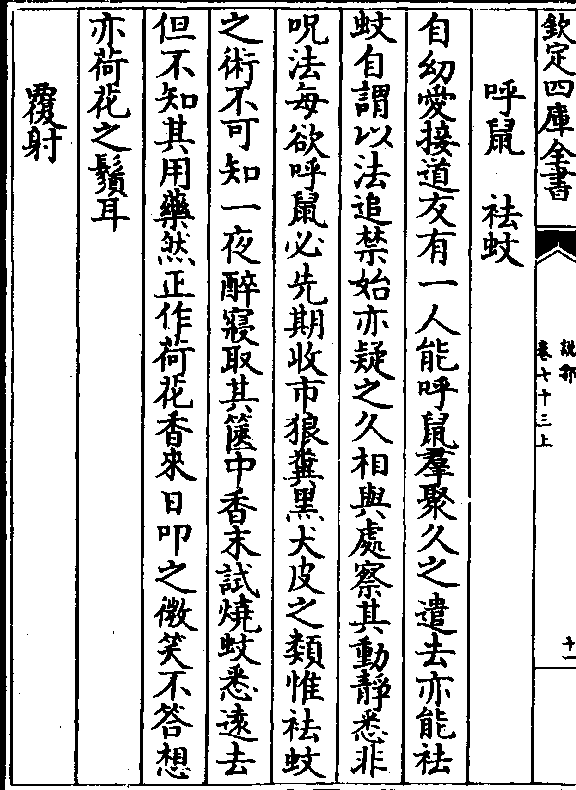 欽定四庫全書
說郛
卷七十三上
十一
呼鼠 祛蚊
自㓜愛接道友有一人能呼鼠羣聚久之遣去亦能祛
蚊自謂以法追禁始亦疑之久相與處察其動靜悉非
呪法每欲呼鼠必先期收市狼糞黑犬皮之類惟祛蚊
之術不可知一夜醉寢取其篋中香末試燒蚊悉逺去
但不知其用藥然正作荷花香來日叩之微笑不答想
亦荷花之鬚耳
覆射